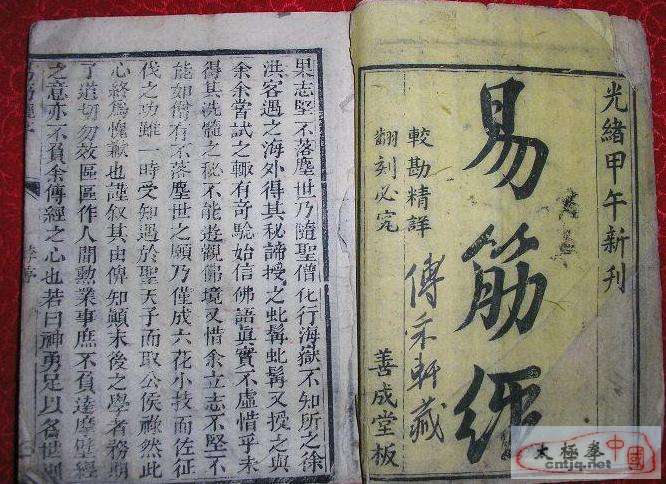 光緒甲午新刊
易筋經
較勘精詳
翻刻必究
善成堂板
果志堅不落塵世乃隨聖僧化行海嶽不知所之徐
洪客遇之海外得其秘諦授之虬髯虬髯又授之與
余余嘗試之輒有竒驗始信佛語眞實不虛惜乎未
得其洗髓之秘不能遊觀佛境又惜余立志不堅不
能如僧有不落塵世之願乃僅成六花小技而佐征
伐之功雖一時受知遇於聖天子而取公侯祿然此
心終爲愧歉也謹叙其由俾知顛末後之學者務期
了道切勿效區區作人間勳業事庶不負達磨壁經
之意亦不負余傳經之心也若曰神勇足以名世則
太極拳中國
cntjq.net